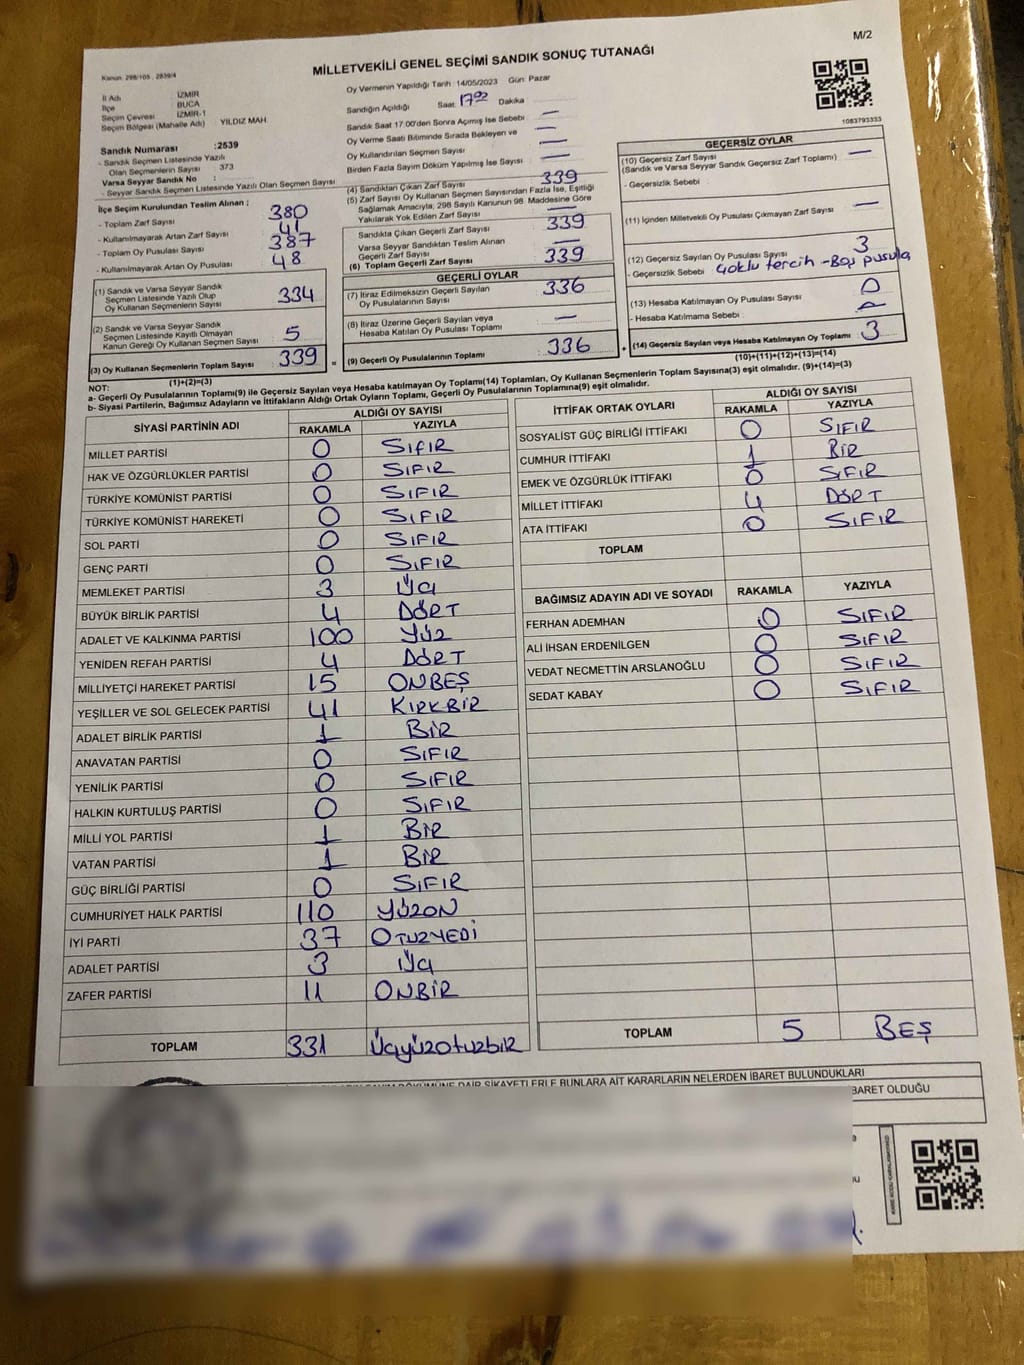 M/2
Kanun: 298/105 , 2839/4
MİLLETVEKİLİ GENEL SEÇİMİ SANDIK SONUÇ TUTANAĞI
İl Adı İZMİR
İlçe BUCA
Seçim Çevresi İZMİR-1
Seçim Bölgesi (Mahalle Adı) YILDIZ MAH
Sandık Numarası :2539
- Sandık Seçmen Listesinde Yazılı
Olan Seçmenlerin Sayısı 373
Varsa Seyyar Sandık No :
- Seyyar Sandık Seçmen Listesinde Yazılı Olan Seçmen Sayısı
Oy Vermenin Yapıldığı Tarih :14/05/2023 Gün: Pazar
Sandığın Açıldığı Saat: 17:00 Dakika —
Sandık Saat 17:00'den Sonra Açımış İse Sebebi —
Oy Verme Saati Bitiminde Sırada Bekleyen ve
Oy Kullandırılan Seçmen Sayısı —
Birden Fazla Sayım Döküm Yapılmış İse Sayısı —
1083793333
İlçe Seçim Kurulundan Teslim Alınan ;
- Toplam Zarf Sayısı 380
- Kullanılmayarak Artan Zarf Sayısı 41
- Toplam Oy Pusulası Sayısı 387
- Kullanılmayarak Artan Oy Pusulası 48
(1) Sandık ve Varsa Seyyar Sandık
Seçmen Listesinde Yazılı Olup
Oy Kullanan Seçmenlerin Sayısı 334
(2) Sandık ve Varsa Seyyar Sandık
Seçmen Listesinde Kayıtlı Olmayan
Kanun Gereği Oy Kullanan Seçmen Sayısı 5
(3) Oy Kullanan Seçmenlerin Toplam Sayısı 339 =
(1)+(2)=(3)
(4) Sandıktan Çıkan Zarf Sayısı 339
(5) Zarf Sayısı Oy Kullanan Seçmen Sayısından Fazla İse, Eşitliği
Sağlamak Amacıyla, 298 Sayılı Kanunun 98. Maddesine Göre
Yakılarak Yok Edilen Zarf Sayısı —
Sandıkta Çıkan Geçerli Zarf Sayısı 339
Varsa Seyyar Sandıktan Teslim Alınan
Geçerli Zarf Sayısı —
(6) Toplam Geçerli Zarf Sayısı 339
GEÇERLİ OYLAR
(7) İtiraz Edilmeksizin Geçerli Sayılan
Oy Pusulalarının Sayısı 336
(8) İtiraz Üzerine Geçerli Sayılan veya
Hesaba Katılan Oy Pusulası Toplamı —
(9) Geçerli Oy Pusulalarının Toplamı 336 +
GEÇERSİZ OYLAR
(10) Geçersiz Zarf Sayısı —
(Sandık ve Varsa Seyyar Sandık Geçersiz Zarf Toplamı)
- Geçersizlik Sebebi :
(11) İçinden Milletvekili Oy Pusulası Çıkmayan Zarf Sayısı —
(12) Geçersiz Sayılan Oy Pusulası Sayısı 3
- Geçersizlik Sebebi Çoklu tercih - Boş pusula
(13) Hesaba Katılmayan Oy Pusulası Sayısı 0
- Hesaba Katılmama Sebebi :
(14) Geçersiz Sayılan veya Hesaba Katılmayan Oy Toplamı 3
(10)+(11)+(12)+(13)=(14)
NOT:
a- Geçerli Oy Pusulalarının Toplamı(9) ile Geçersiz Sayılan veya Hesaba katılmayan Oy Toplamı(14) Toplamları, Oy Kullanan Seçmenlerin Toplam Sayısına(3) eşit olmalıdır. (9)+(14)=(3)
b- Siyasi Partilerin, Bağımsız Adayların ve İttifakların Aldığı Ortak Oyların Toplamı, Geçerli Oy Pusulalarının Toplamına(9) eşit olmalıdır.
SİYASİ PARTİNİN ADI ALDIĞI OY SAYISI
RAKAMLA YAZIYLA
MİLLET PARTİSİ 0 SIFIR
HAK VE ÖZGÜRLÜKLER PARTİSİ 0 SIFIR
TÜRKİYE KOMÜNİST PARTİSİ 0 SIFIR
TÜRKİYE KOMÜNİST HAREKETİ 0 SIFIR
SOL PARTİ 0 SIFIR
GENÇ PARTİ 0 SIFIR
MEMLEKET PARTİSİ 3 ÜÇ
BÜYÜK BİRLİK PARTİSİ 4 DÖRT
ADALET VE KALKINMA PARTİSİ 100 YÜZ
YENİDEN REFAH PARTİSİ 4 DÖRT
MİLLİYETÇİ HAREKET PARTİSİ 15 ONBEŞ
YEŞİLLER VE SOL GELECEK PARTİSİ 41 KIRKBİR
ADALET BİRLİK PARTİSİ 1 BİR
ANAVATAN PARTİSİ 0 SIFIR
YENİLİK PARTİSİ 0 SIFIR
HALKIN KURTULUŞ PARTİSİ 0 SIFIR
MİLLİ YOL PARTİSİ 1 BİR
VATAN PARTİSİ 1 BİR
GÜÇ BİRLİĞİ PARTİSİ 0 SIFIR
CUMHURİYET HALK PARTİSİ 110 YÜZON
İYİ PARTİ 37 OTUZYEDİ
ADALET PARTİSİ 3 ÜÇ
ZAFER PARTİSİ 11 ONBİR
TOPLAM 331 ÜÇYÜZOTUZBİR
İTTİFAK ORTAK OYLARI ALDIĞI OY SAYISI
RAKAMLA YAZIYLA
SOSYALİST GÜÇ BİRLİĞİ İTTİFAKI 0 SIFIR
CUMHUR İTTİFAKI 1 BİR
EMEK VE ÖZGÜRLÜK İTTİFAKI 0 SIFIR
MİLLET İTTİFAKI 4 DÖRT
ATA İTTİFAKI 0 SIFIR
TOPLAM
BAĞIMSIZ ADAYIN ADI VE SOYADI RAKAMLA YAZIYLA
FERHAN ADEMHAN 0 SIFIR
ALİ İHSAN ERDENİLGEN 0 SIFIR
VEDAT NECMETTİN ARSLANOĞLU 0 SIFIR
SEDAT KABAY 0 SIFIR
TOPLAM 5 BEŞ
DÖKÜMÜNE DAİR ŞİKAYETLERLE BUNLARA AİT KARARLARIN NELERDEN İBARET BULUNDUKLARI
BARET OLDUĞU